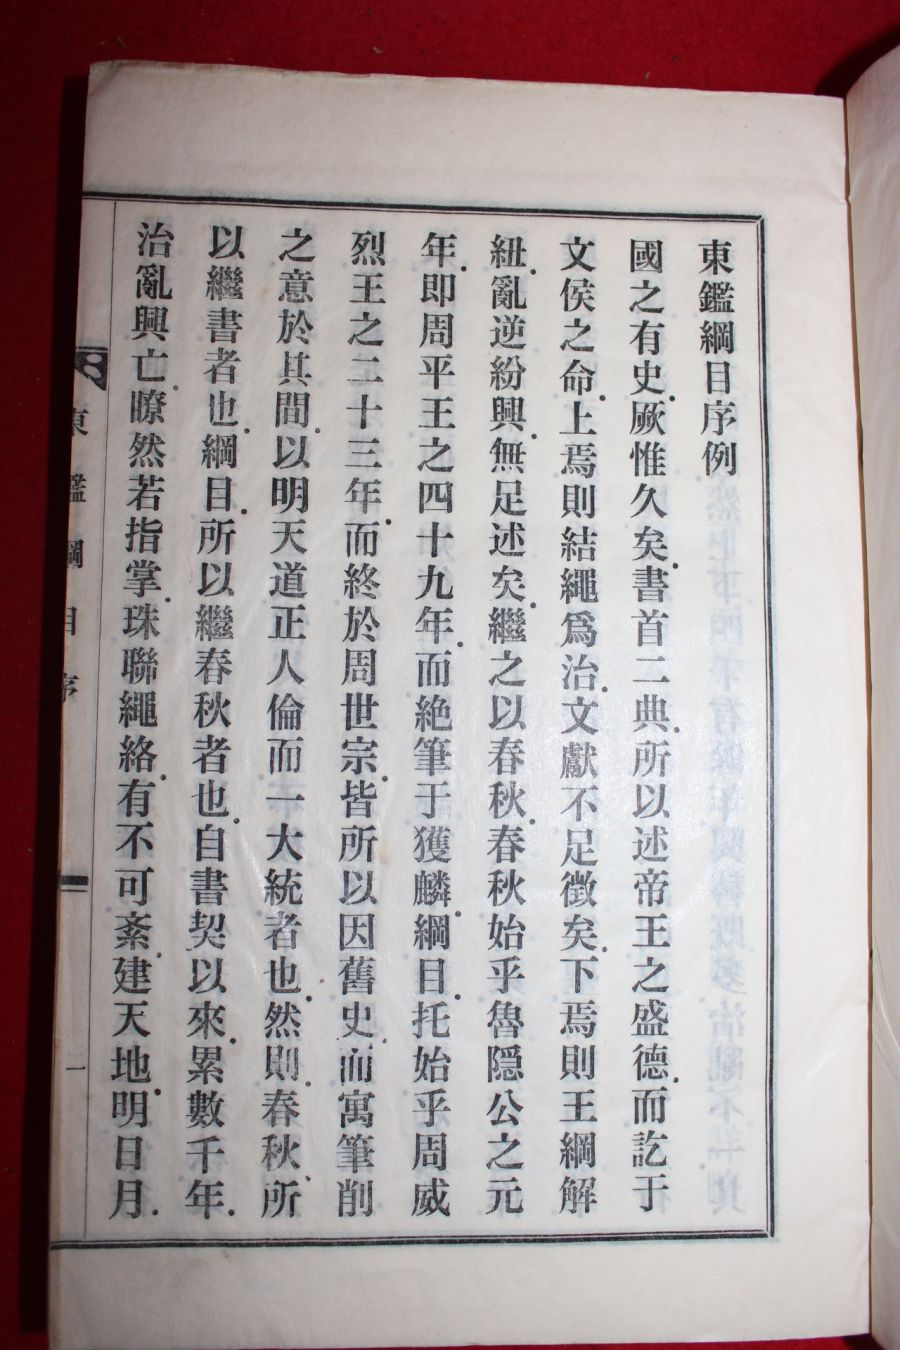 東鑑綱目序例
國之有史.厥惟久矣.書首二典.所以述帝王之盛德.而訖于
文侯之命.上焉則結繩爲治.文獻不足徵矣.下焉則王綱解
紐.亂逆紛興.無足述矣.繼之以春秋.春秋始乎魯隱公之元
年.即周平王之四十九年.而絶筆于獲麟.綱目.托始乎周威
烈王之二十三年.而終於周世宗.皆所以因舊史.而寓筆削
之意於其間.以明天道正人倫而一大統者也.然則.春秋.所
以繼書者也.綱目.所以繼春秋者也.自書契以來.累數千年.
治亂興亡.瞭然若指掌.珠聯繩絡.有不可紊.建天地.明日月.
東鑑綱目序
一